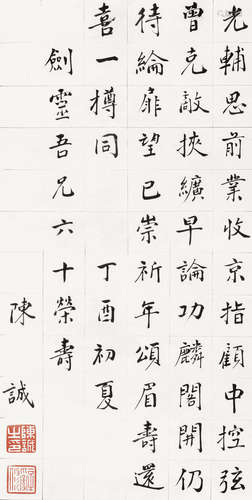 光輔思前業收京指顧中控弦
曾克敵挾纊早論功麟閣開仍
待綸扉望已崇祈年頌眉壽還
喜一搏同 丁酉初夏
劍靈吾兄六十榮壽
陳誠